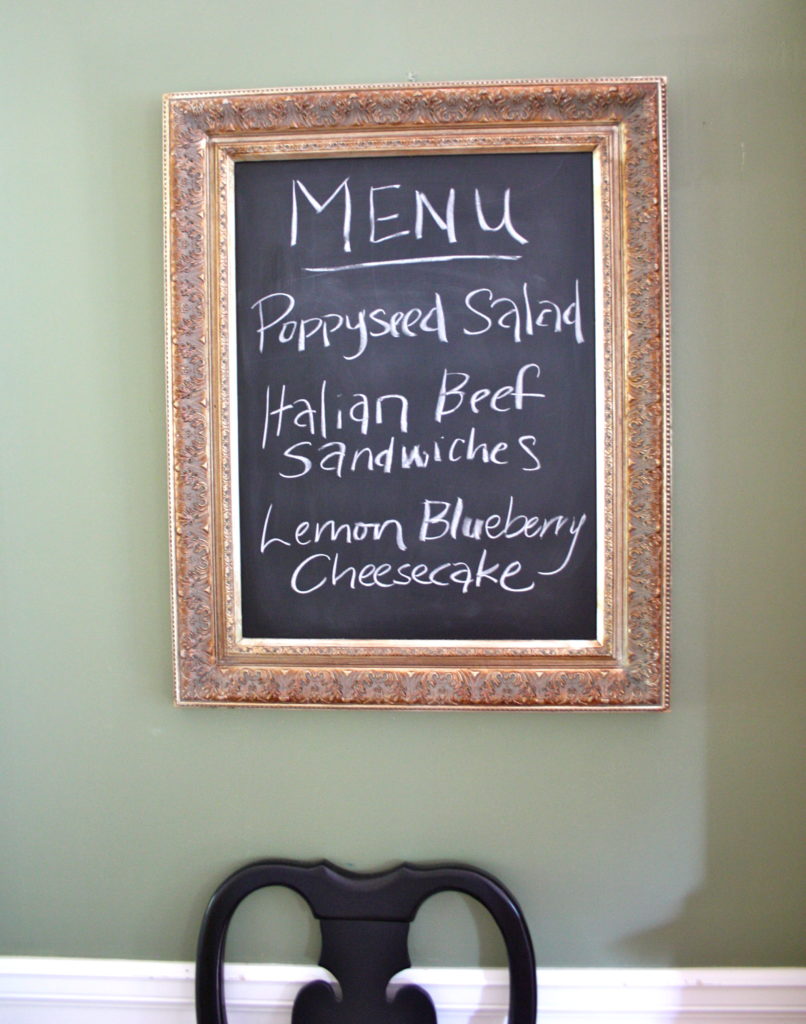 MENU
Poppyseed Salad
Italian Beef
Sandwiches
Lemon Blueberry
Cheesecake